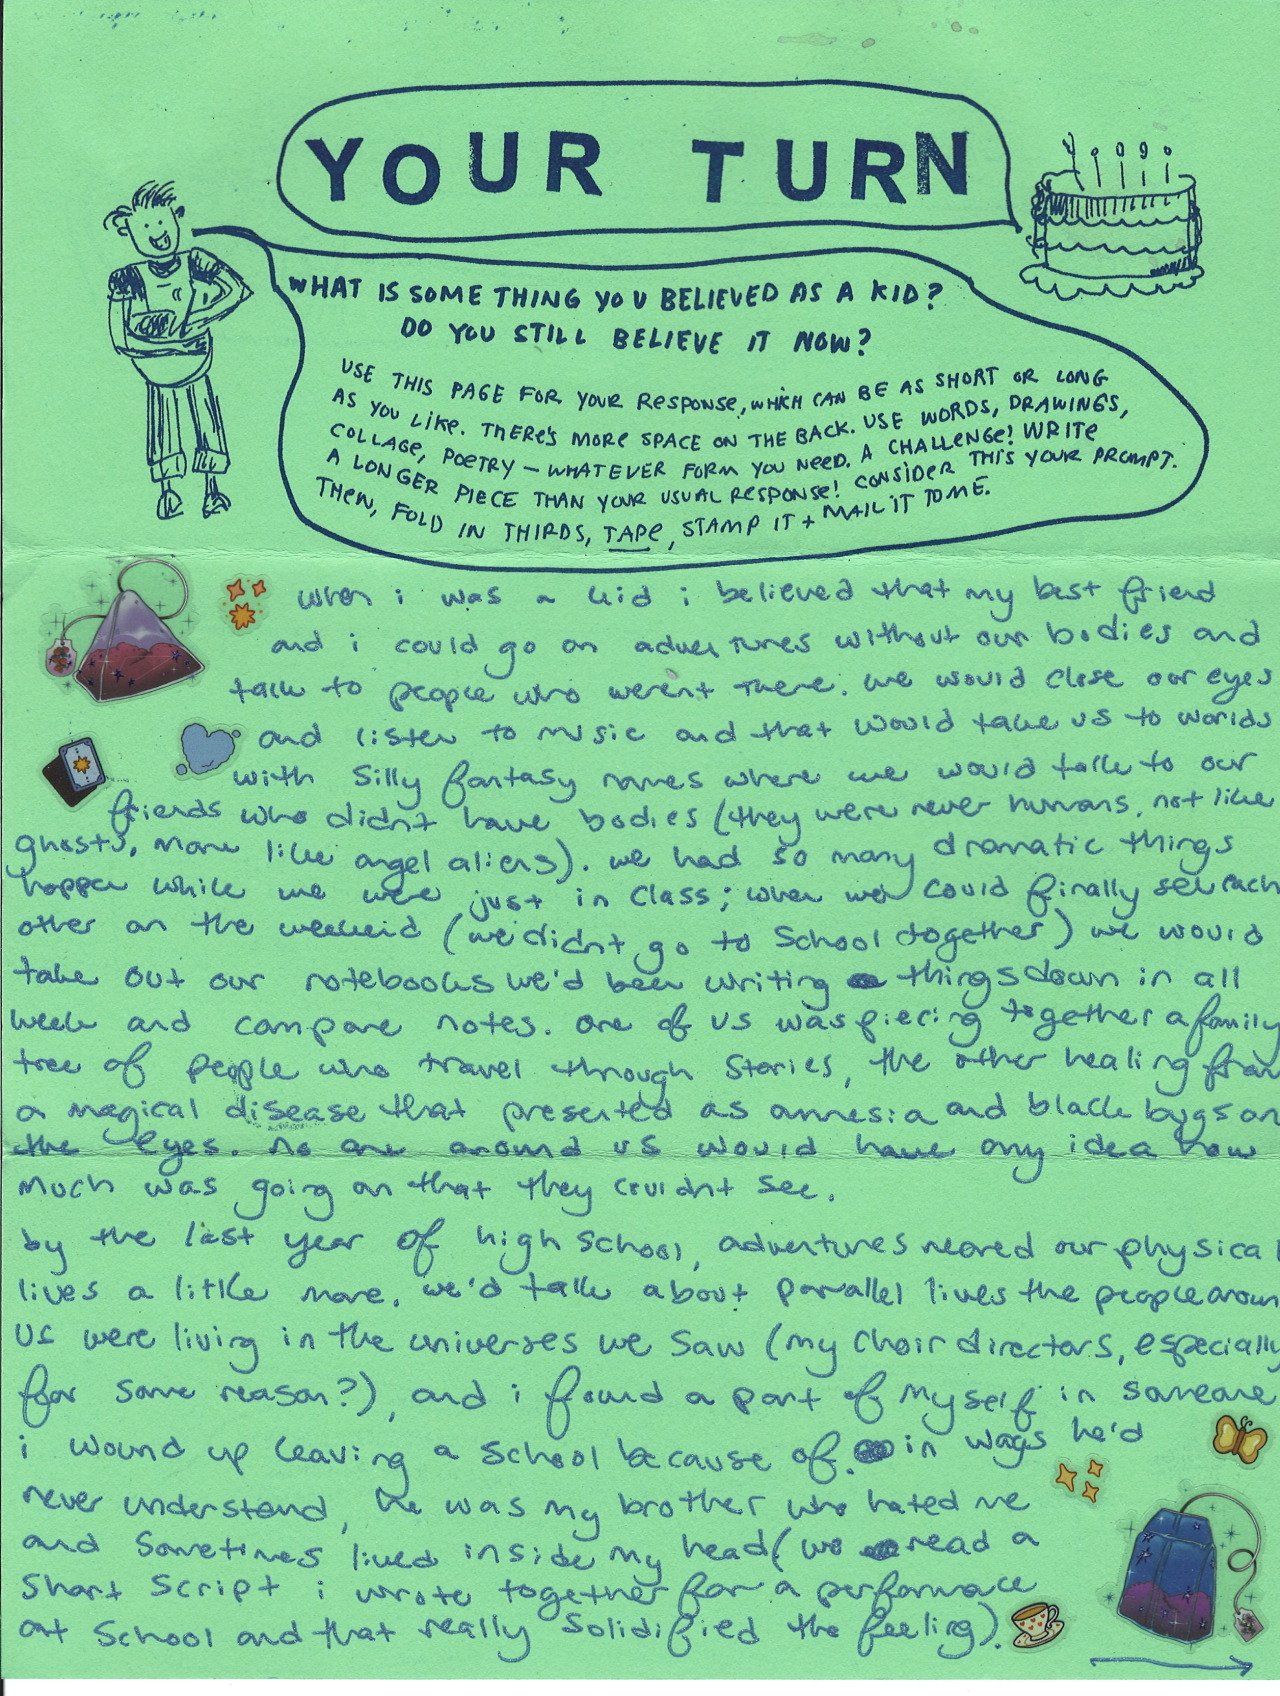 YOUR TURN
WHAT IS SOMETHING YOU BELIEVED AS A KID?
DO YOU STILL BELIEVE IT NOW?
USE THIS PAGE FOR YOUR RESPONSE, WHICH CAN BE AS SHORT OR LONG
AS YOU LIKE. THERE'S MORE SPACE ON THE BACK. USE WORDS, DRAWINGS,
COLLAGE, POETRY — WHATEVER FORM YOU NEED. A CHALLENGE! WRITE
A LONGER PIECE THAN YOUR USUAL RESPONSE! CONSIDER THIS YOUR PROMPT.
THEN, FOLD IN THIRDS, TAPE, STAMP IT + MAIL IT TO ME.
when i was a kid i believed that my best friend
and i could go on adventures without our bodies and
talk to people who werent there. we would close our eyes
and listen to music and that would take us to worlds
with silly fantasy names where we would talk to our
friends who didn't have bodies (they were never humans. not like
ghosts, more like angel aliens). we had so many dramatic things
happen while we were just in class; when we could finally see each
other on the weekend (we didnt go to school together) we would
take out our notebooks we'd been writing things down in all
week and compare notes. one of us was piecing together a family
tree of people who travel through stories, the other healing from
a magical disease that presented as amnesia and black bugs on
the eyes. no one around us would have any idea how
much was going on that they couldnt see.
by the last year of high school, adventures neared our physical
lives a little more. we'd talk about parallel lives the people around
us were living in the universes we saw (my choir directors, especially
for some reason?), and i found a part of myself in someone
i wound up leaving a school because of. in ways he'd
never understand, he was my brother who hated me
and sometimes lived inside my head (we read a
short script i wrote together for a performace
at school and that really solidified the feeling).